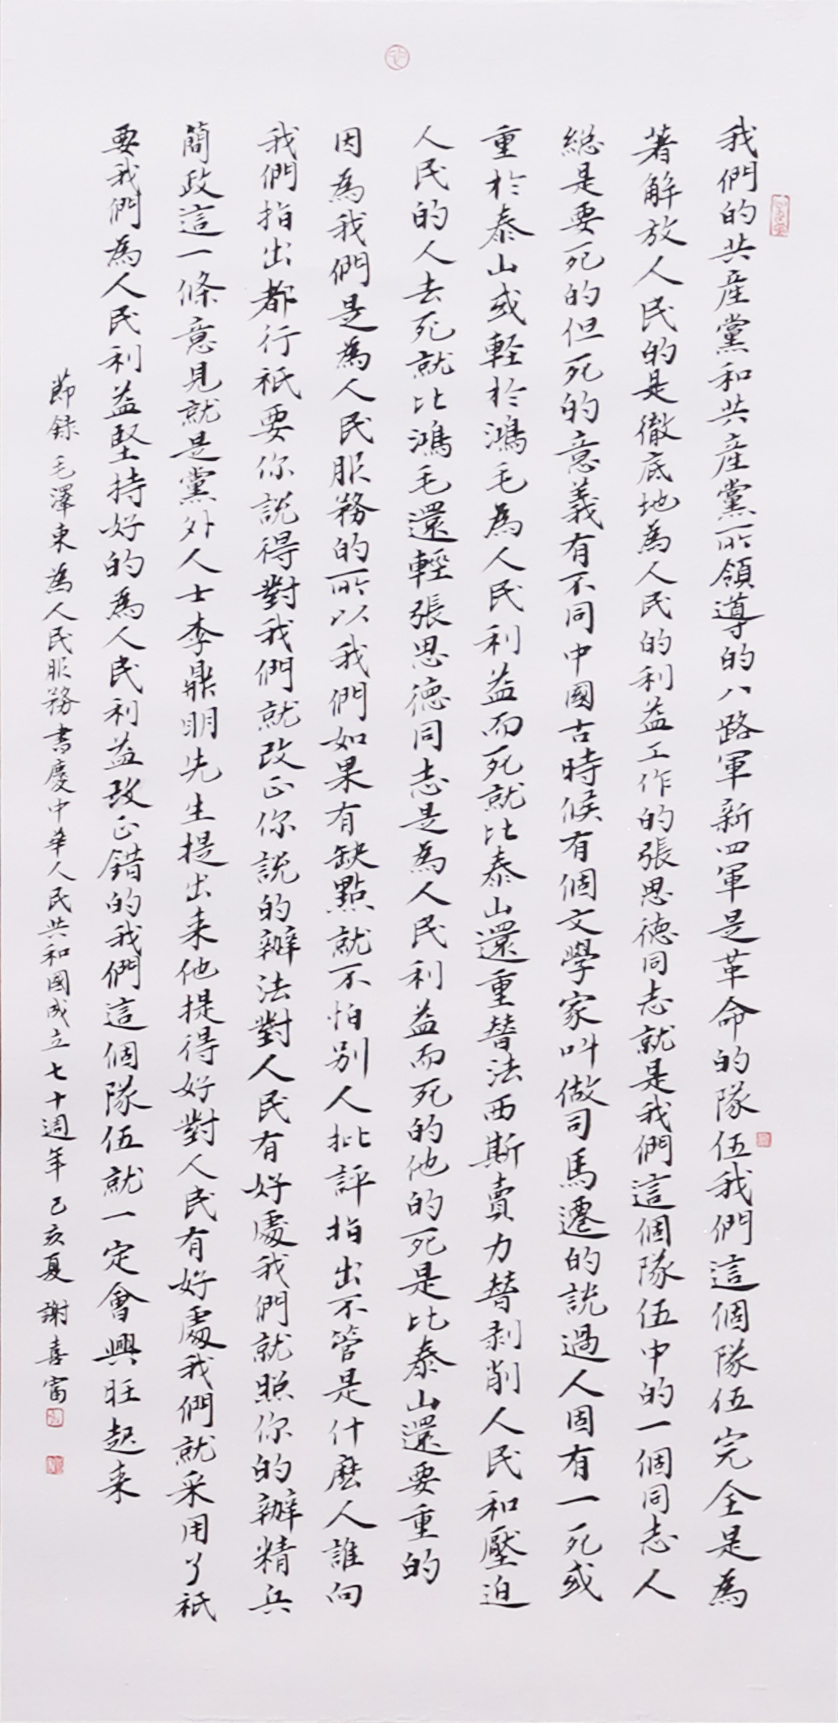 我們的共産黨和共産黨所領導的八路軍新四軍是革命的隊伍我們這個隊伍完全是為
著解放人民的是徹底地為人民的利益工作的張思德同志就是我們這個隊伍中的一個同志人
總是要死的但死的意義有不同中國古時候有個文學家叫做司馬遷的説過人固有一死或
重於泰山或輕於鴻毛為人民利益而死就比泰山還重替法西斯賣力替剥削人民和壓迫
人民的人去死就比鴻毛還輕張思德同志是為人民利益而死的他的死是比泰山還要重的
因為我們是為人民服務的所以我們如果有缺點就不怕别人批評指出不管是什麽人誰向
我們指出都行祇要你説得對我們就改正你説的辦法對人民有好處我們就照你的辦精兵
簡政這一條意見就是黨外人士李鼎明先生提出来他提得好對人民有好處我們就采用了祇
要我們為人民利益堅持好的為人民利益改正錯的我們這個隊伍就一定會興旺起来
節録毛澤東為人民服務書慶中華人民共和國成立七十週年己亥夏謝喜富